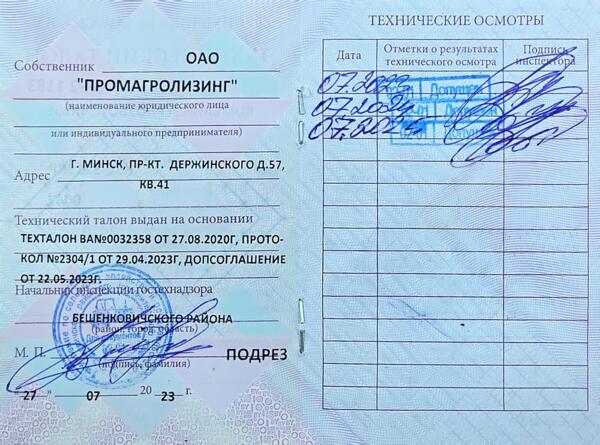 Собственник ОАО
"ПРОМАГРОЛИЗИНГ"
(наименование юридического лица
или индивидуального предпринимателя)
Г. МИНСК, ПР-КТ. ДЕРЖИНСКОГО Д.57,
Адрес КВ.41
Технический талон выдан на основании
ТЕХТАЛОН ВА№0032358 ОТ 27.08.2020Г, ПРОТО-
КОЛ №2304/1 ОТ 29.04.2023Г, ДОПСОГЛАШЕНИЕ
ОТ 22.05.2023Г.
Начальник инспекции гостехнадзора
БЕШЕНКОВИЧСКОГО РАЙОНА
(район, город, область)
М. П. ПОДРЕЗ
(подпись, фамилия)
27 " 07 20 23 г.
ТЕХНИЧЕСКИЕ ОСМОТРЫ
Дата Отметки о результатах технического осмотра Подпись инспектора
07.2023 Допущен
07.2024 Допущен
07.2025 Допущен